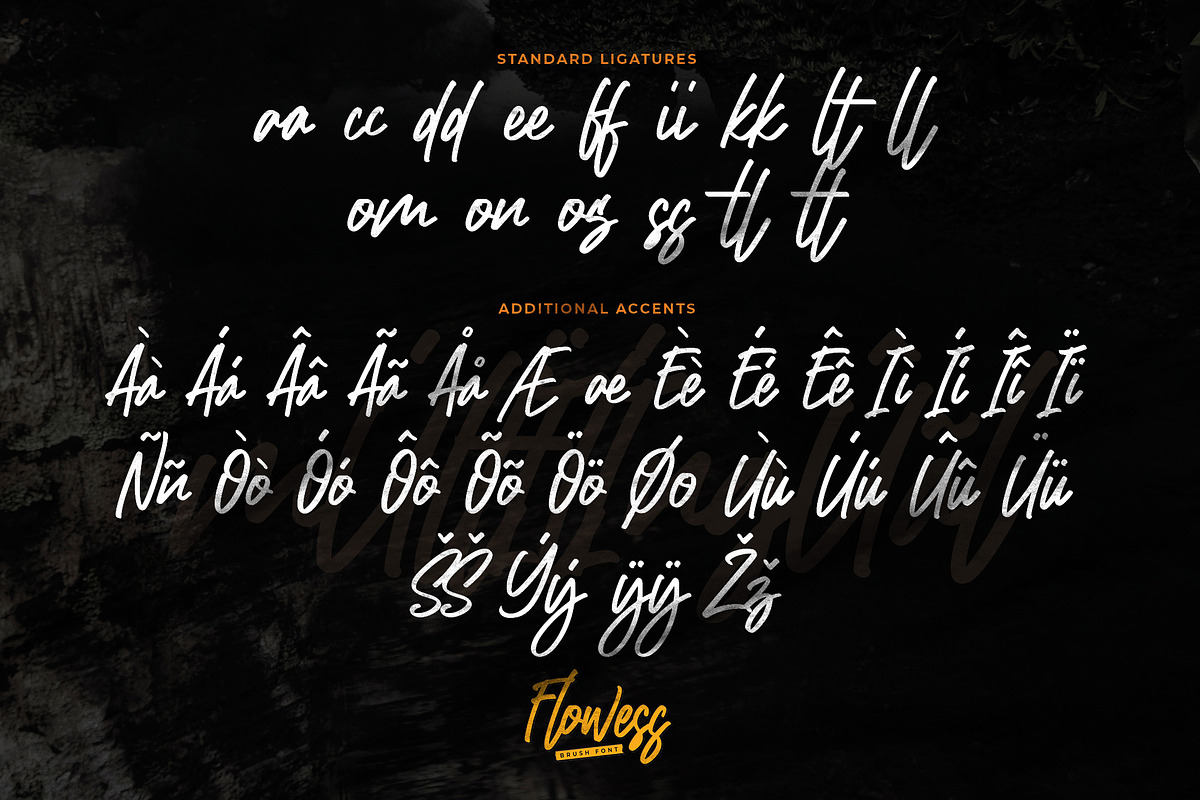 STANDARD LIGATURES
aa cc dd ee ff ii kk lt ll
om on os ss tl tt
ADDITIONAL ACCENTS
Àà Áá Ââ Ãã Åå Æ ae Èè Éé Êê Ìì Íí Îî Ïï
Ññ Òò Óó Ôô Õõ Öö Øo Ùù Úú Ûû Üü
ŠŠ Ýý ÿÿ Žž
Flowess
BRUSH FONT